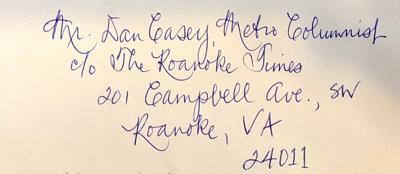 Mr. Dan Casey, Metro Columnist
c/o The Roanoke Times
201 Campbell Ave., SW
Roanoke, VA
24011